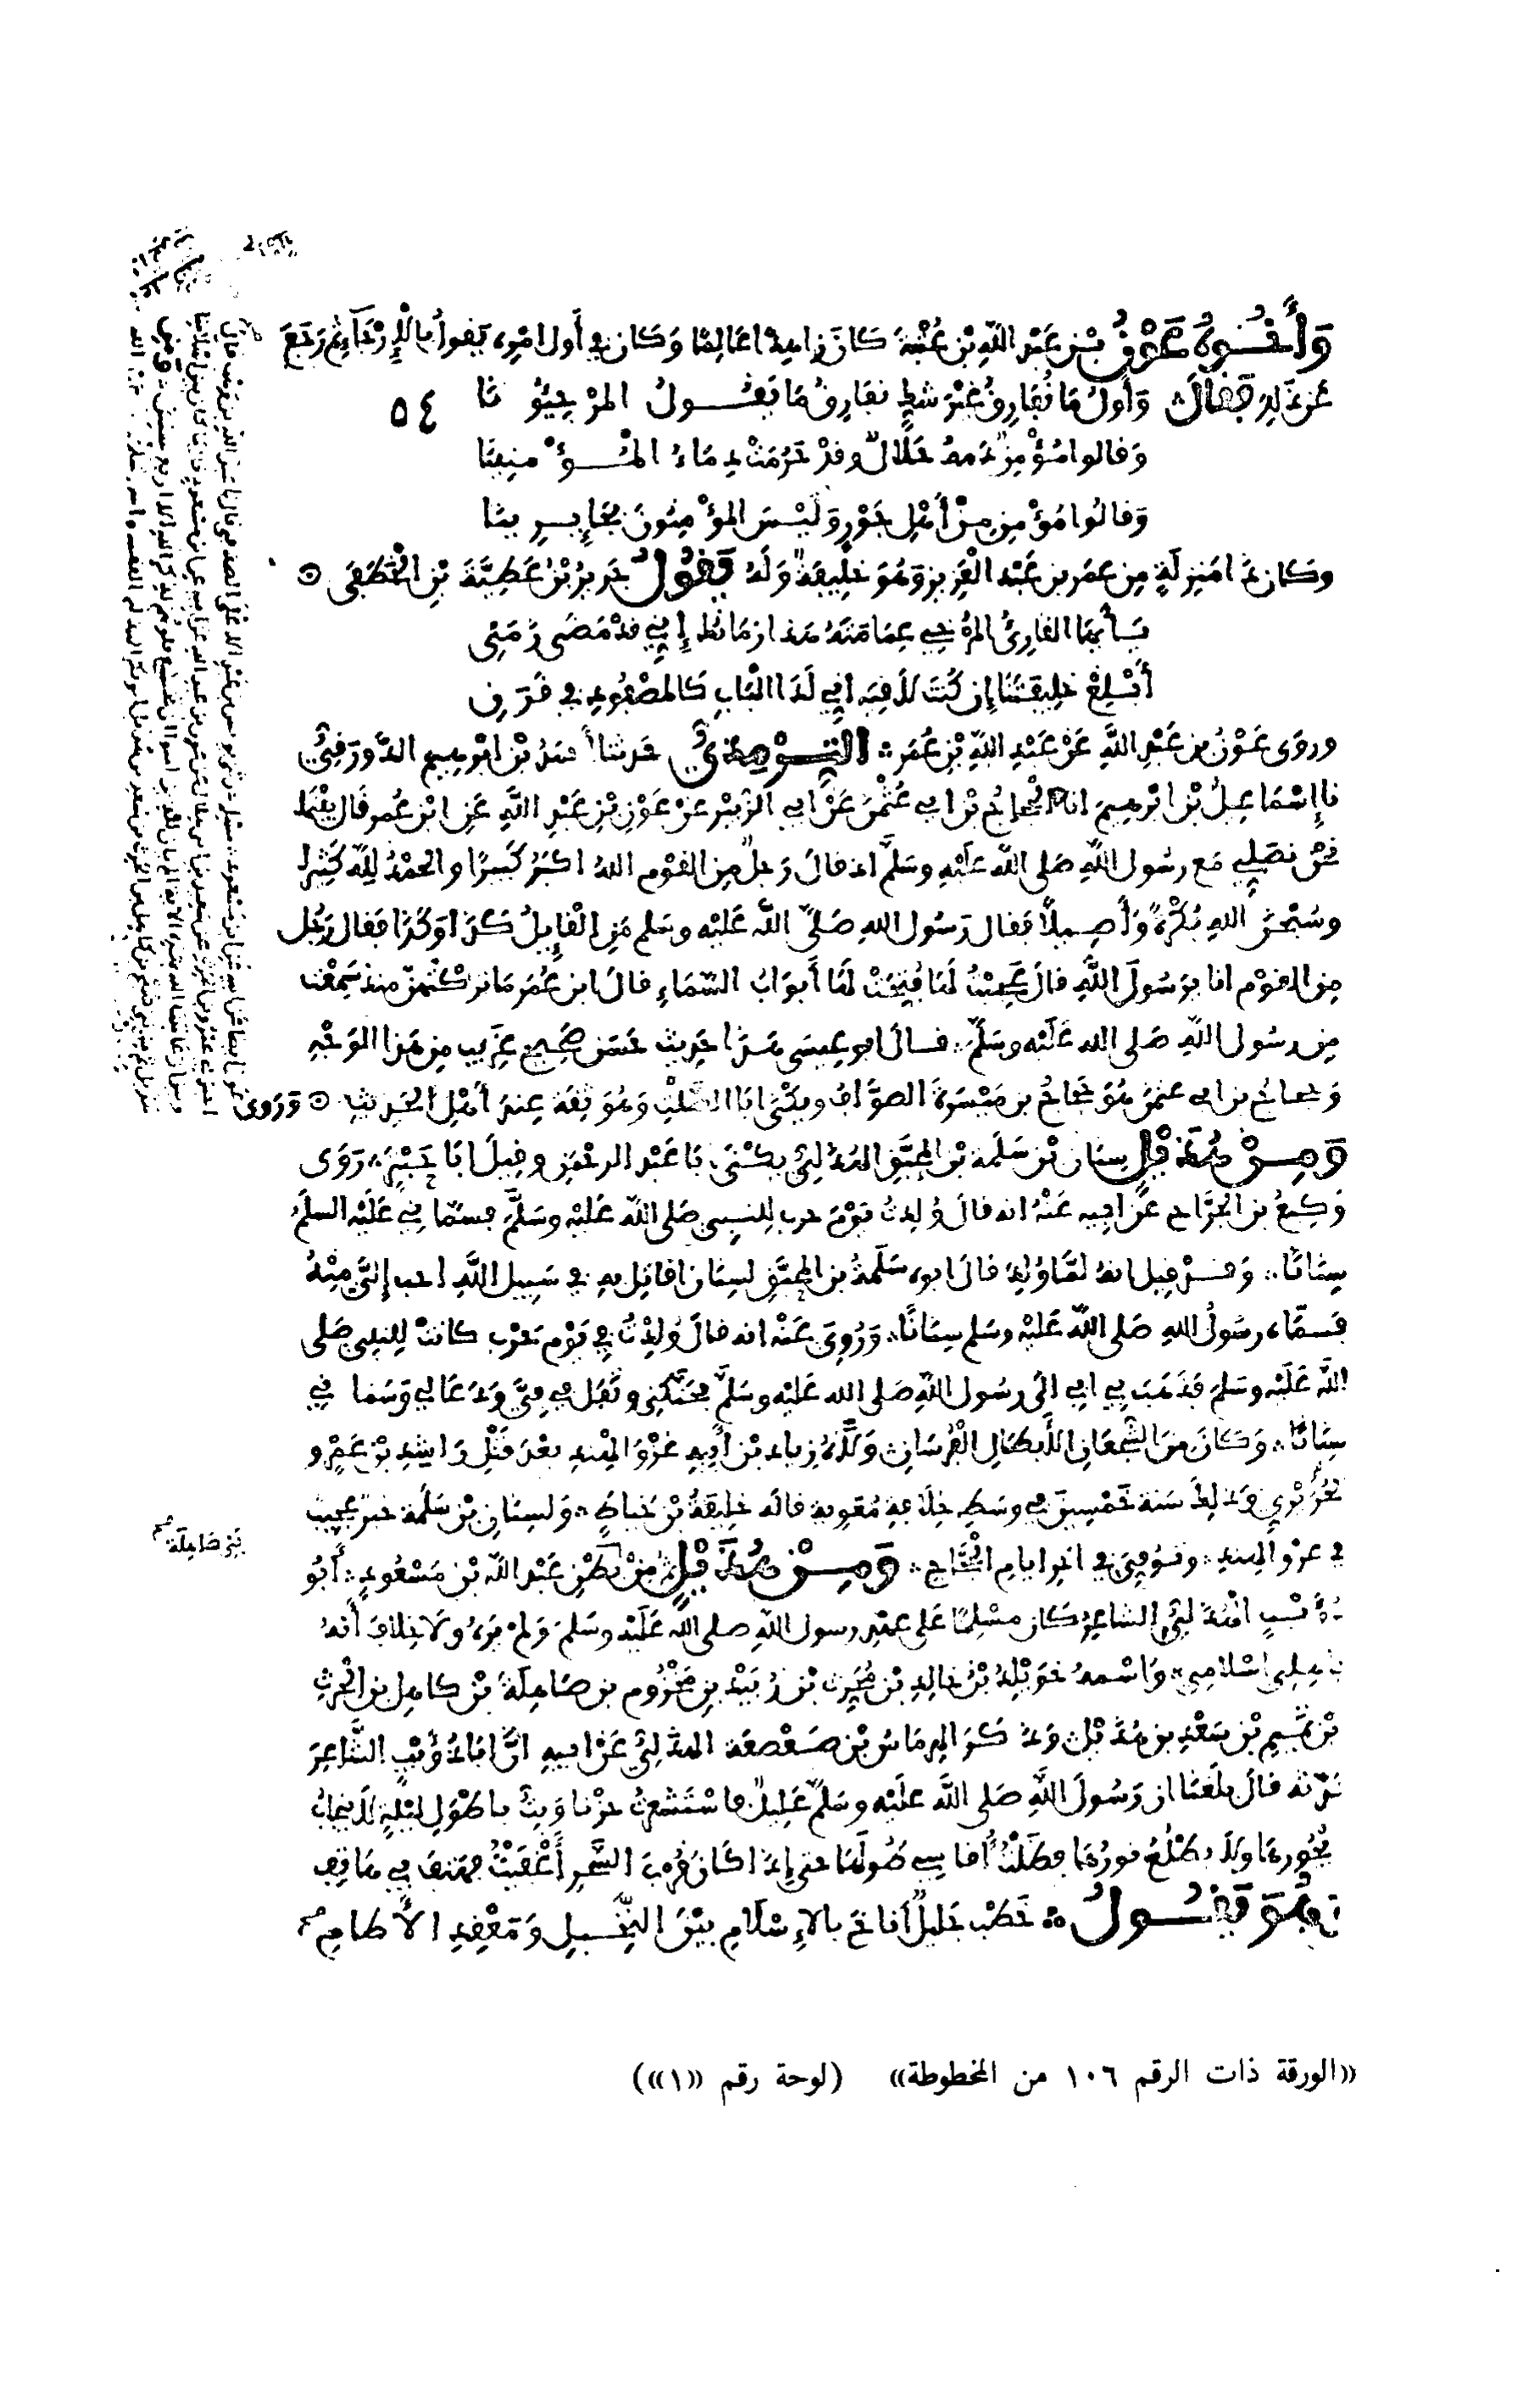 وَأَخُوهُ عَوْنُ بْنُ عَبْدِ اللهِ بْنِ عُتْبَةَ كَانَ زاهِدًا عَالِمًا وَكَانَ فِي أول امْرِهِ يَقولُ بِالْإِرْجَآءِ ثم رَجَعَ
عَن ذَلِكَ فَقَالَ وَأَولُ مَا نُفَارِقُ غَيْرَ شَكٍّ نفَارِقُ مَا يَقُولُ المرْجِئونَا
٥٤
وَقالوا مُؤْمِنٌ دَمهُ حَلَالٌ وقدْ حَرُمَتْ دِمَاءُ المُؤْمنِينَا
وَقالُوا مُؤْمِنٌ مِنْ أَهْلِ جَوْرٍ وَلَيْسَ المُؤْمِنُونَ بِجَايِرِينَا
وكَانَ ذَا مَنزِلَةٍ مِن عمَر بن عَبْد الْعَزِيز وَهُوَ خَلِيفَةٌ وَلَهُ يَقُولُ جَرِيرُ بْنُ عَطِيَّةَ بْنِ الْخَطَفَى
يَأَيُّهَا القارئُ المرْخِي عِمَامَتَهُ هَذا زمَانُكَ إِنِّي قدْ مَضَى زَمَنِى
أَبْلِغْ خَلِيفَتَنَا إِن كُنتَ لاَقِيَه أنِّي لَدَا الْبَابِ كَالمَصْفُودِ فِي قَرَنِ
وروَى عَوْنُ بن عَبْدِ اللهِ عَنْ عَبْدِ اللهِ بْنِ عُمَرَ التِّرْمِذِيُّ حَدثنَا أَحمَدُ بْنُ ابْرهِيم الدَّوْرَقِيُّ
نا إِسْمَاعِيلُ بْنُ ابْرَهِيمَ انا الْحجاجُ بْنُ ابي عُثْمنَ عَنْ أَبي الزُّبَيْرِ عَنْ عَوْنِ بْنِ عَبْدِ اللهِ عَنِ ابْنِ عُمر قَال بَيْنَمَا
نَحْنُ نصَلِّي مَع رسُول اللهِ صَلى اللهُ عَلَيْهِ وسَلَّمَ اذ قالَ رَجلٌ مِنَ القَوْم اللهُ اكبَرُ كَبيرًا والحَمْدُ لِلَّهِ كَثِيرا
وَسُبْحنَ اللهِ بُكْرَةً وَأَصِيلًا فَقال رَسُول الله صَلَّى اللهُ عَلَيْه وسَلم مَنِ الْقَايِلُ كَذَا وَكَذَا فَقال رَجُل
مِن القَوْم انا يَرَسُولَ اللهِ قالَ عَجِبْتُ لَهَا فُتِحَتْ لَهَا أَبوابُ السَّمَاءِ قالَ ابن عُمَر مَا تركْتُهُنَّ منذ سَمِعْتُ
مِن رسُول اللهِ صَلى الله عَلَيْه وسَلَّمَ قال ابو عيسَى هَذَا حَدِيث حَسَن صَحِيح غَرِيب مِن هَذَا الوَجْهِ
وَحجاجُ بن ابي عثمنَ هُوَ حَجَّاجُ بن مَيْسَرَةَ الصوَّافُ ويكْنَى ابَا الصَّلْتِ وَهُوَ ثِقَة عِندَ أَهْلِ الحَدِيث وَرَوى
وَمِنْ هُذَيْلٍ سِنَان بْن سَلَمَة بْن المُحَبَّقِ الهُذَلِيُّ يكْنَى بَا عَبْد الرحْمَنِ وقِيلَ ابَا حَبْتَرٍ رَوَى
وَكِيعُ بن الجَرَّاح عَنْ ابِيه عَنْهُ انه قالَ وُلِدتُ يَوْمَ حرب لِلنبِي صَلى اللهُ عَلَيْهِ وسَلَّمَ فسمَّانِي عَلَيْهِ السلَمُ
سِنَانًا وَقَدْ قِيل انهُ لمَّا وُلِدَ قالَ ابوه سَلَمَةُ بن المحَبَّقِ لسِنَان اقاتِل بِهِ في سَبِيلِ اللهِ احب إِلَيَّ مِنْهُ
فَسمَّاه رسُولُ اللهِ صَلى اللهُ عَلَيْه وسَلم سِنَانًا وَرُوِيَ عَنْهُ انه قالَ وُلِدْتُ في يَوْم حَرْب كانتْ لِلنبِي صَلى
اللهُ عَلَيْه وسَلمَ فذَهَبَ بِي ابي الَى رسُول اللهِ صَلى الله عَليْه وسَلَّمَ فحَنَّكَنِي وتَفَل في فِيَّ وَدَعَا لي وَسَمانِي
سِنَانًا وَكَانَ مِنَ الشُّجعَانِ الأَبطَالِ الْفُرسَانِ وَلَّاهُ زِيَاد بْن أَبِيهِ غَزْوَ الْهِندِ بعْدَ قَتْلِ رَاشِدِ بْنِ عَمْرٍو
الجُدَيْدِيّ وَذَلِكَ سَنة خَمْسِينَ في وسَطِ خِلَافةِ مُعَوِيَة قالَه خَلِيفَةُ بْن خَيَّاطٍ وَلسِنَانِ بْن سَلَمة خبرٌ عجِيب
في غزْو الهندِ وتوُفِّيَ في اخِرِ ايامِ الحَجَّاجِ وَمِنْ هُذَيْلٍ مِنْ بَطْنِ عَبْدِ اللهِ بْن مَسْعُودٍ أَبُو
بَنِي صَاهِلَة
ذُؤَيْبٍ الهُذَلِيُّ الشاعِرُ كَانَ مسْلِمًا عَلى عهْدِ رسول اللهِ صلى اللهُ عَلَيْه وسَلمَ وَلمْ يرَهُ وَلَا خِلَافَ أَنهُ
جاهِلي اسْلامِي وَاسْمهُ خُوَيْلِدُ بْنُ خالِدِ بْن مُحَرِّث بْن زُبَيْد بن مَخْزُوم بن صَاهِلَةَ بْن كاهِل بن الْحرثِ
بْن تَمِيمِ بْن سَعْدِ بن هُذَيْلٍ وَذَكَرَ الهِرْمَاسُ بْن صَعْصعَة الهذَلِيُّ عَنْ ابِيهِ انَّ ابَا ذُؤَيْبٍ الشَّاعِرَ
حَدَّثه قالَ بلَغَنَا ان رَسُولَ اللهِ صَلى اللهُ عَليْه وسَلَّمَ عَلِيلٌ فاسْتَشْعَرْتُ حزْنا وَبِتُّ باطْوَلِ لَيْلَةٍ لَا ينجَابُ
دَيْجُورهَا ولَا يطْلُعُ نورُهَا فظَلْتُ أُقاسِي طُولَهَا حتى إِذَا كَانَ قُرْبَ السَّحَرِ أَغْفَيْتُ فهَتفَ بي هَاتِف
وَهُوَ يَقُولُ خَطْبٌ جَليلٌ أَناخَ بالإِسْلَامِ بيْنَ النَّخِيلِ وَمَعْقِدِ الأَطامِ
«الورقة ذات الرقم ١٠٦ من المخطوطة» (لوحة رقم «١»)